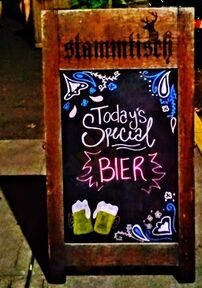 stammtisch
Today's
Special
BIER